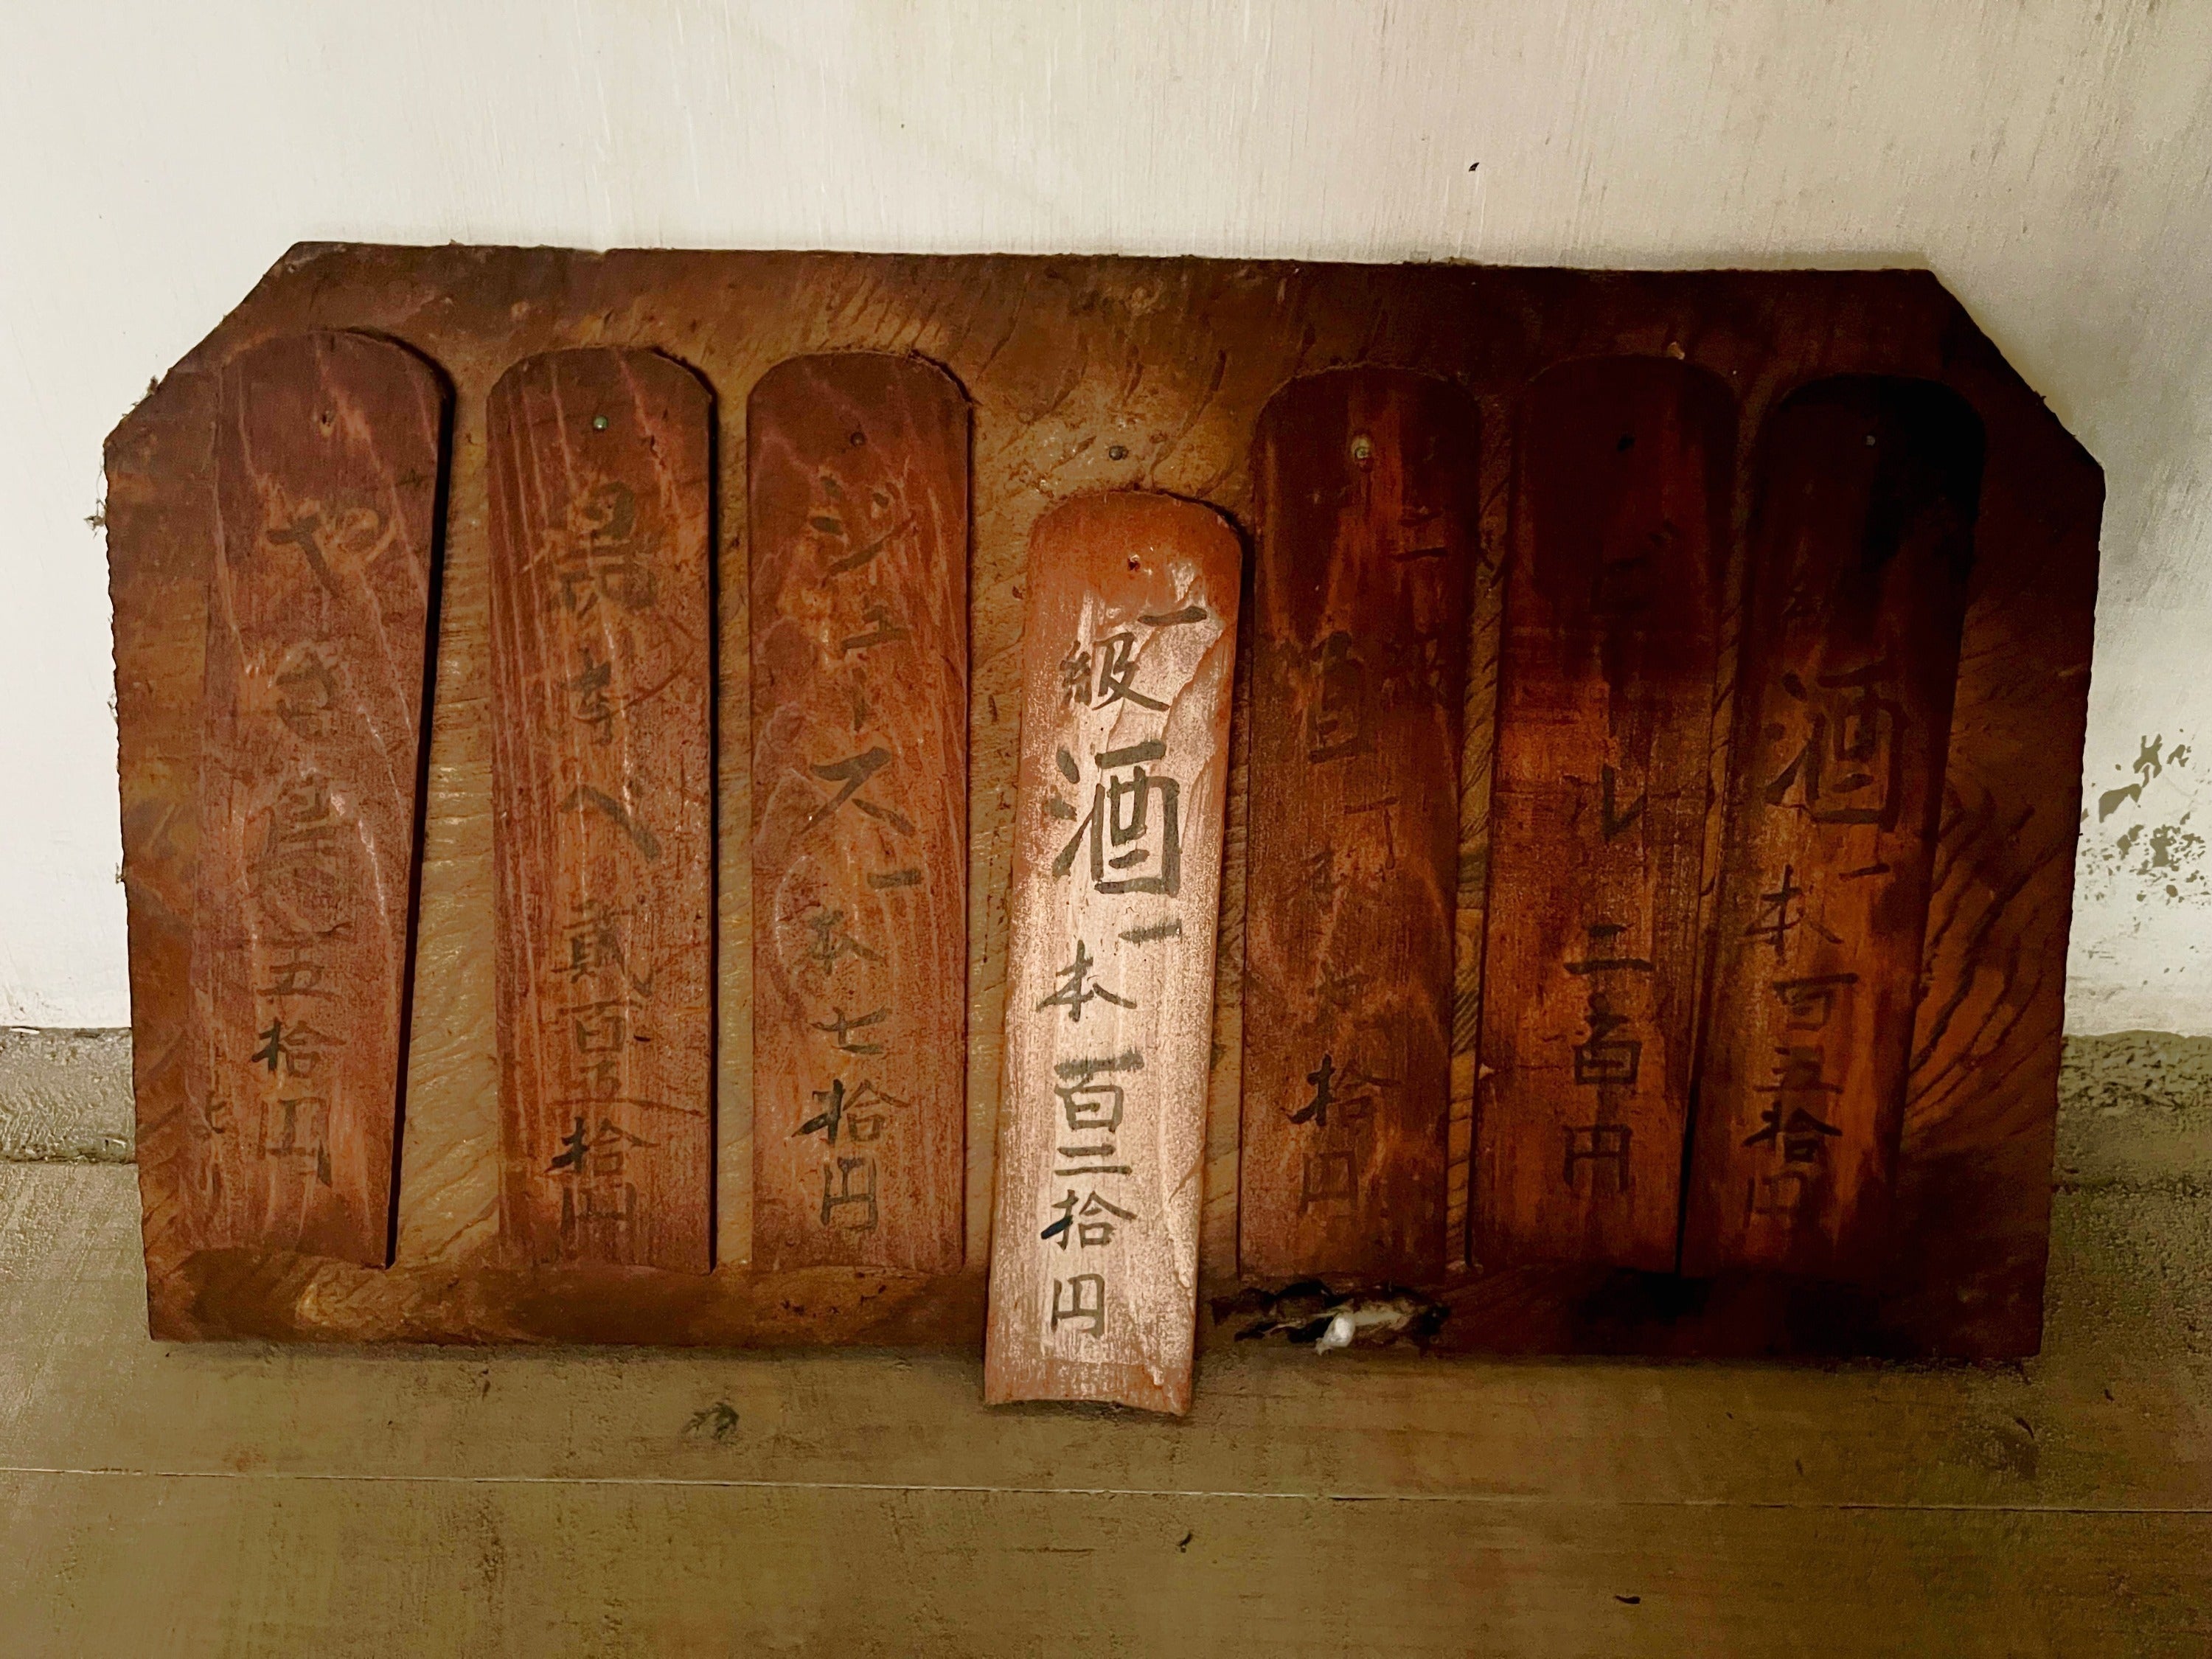 酒一本百五拾円
ビール二百円
二級酒一本九拾円
一級酒一本百三拾円
ジュース一本七拾円
すべ貳百五拾円
やき 五拾円